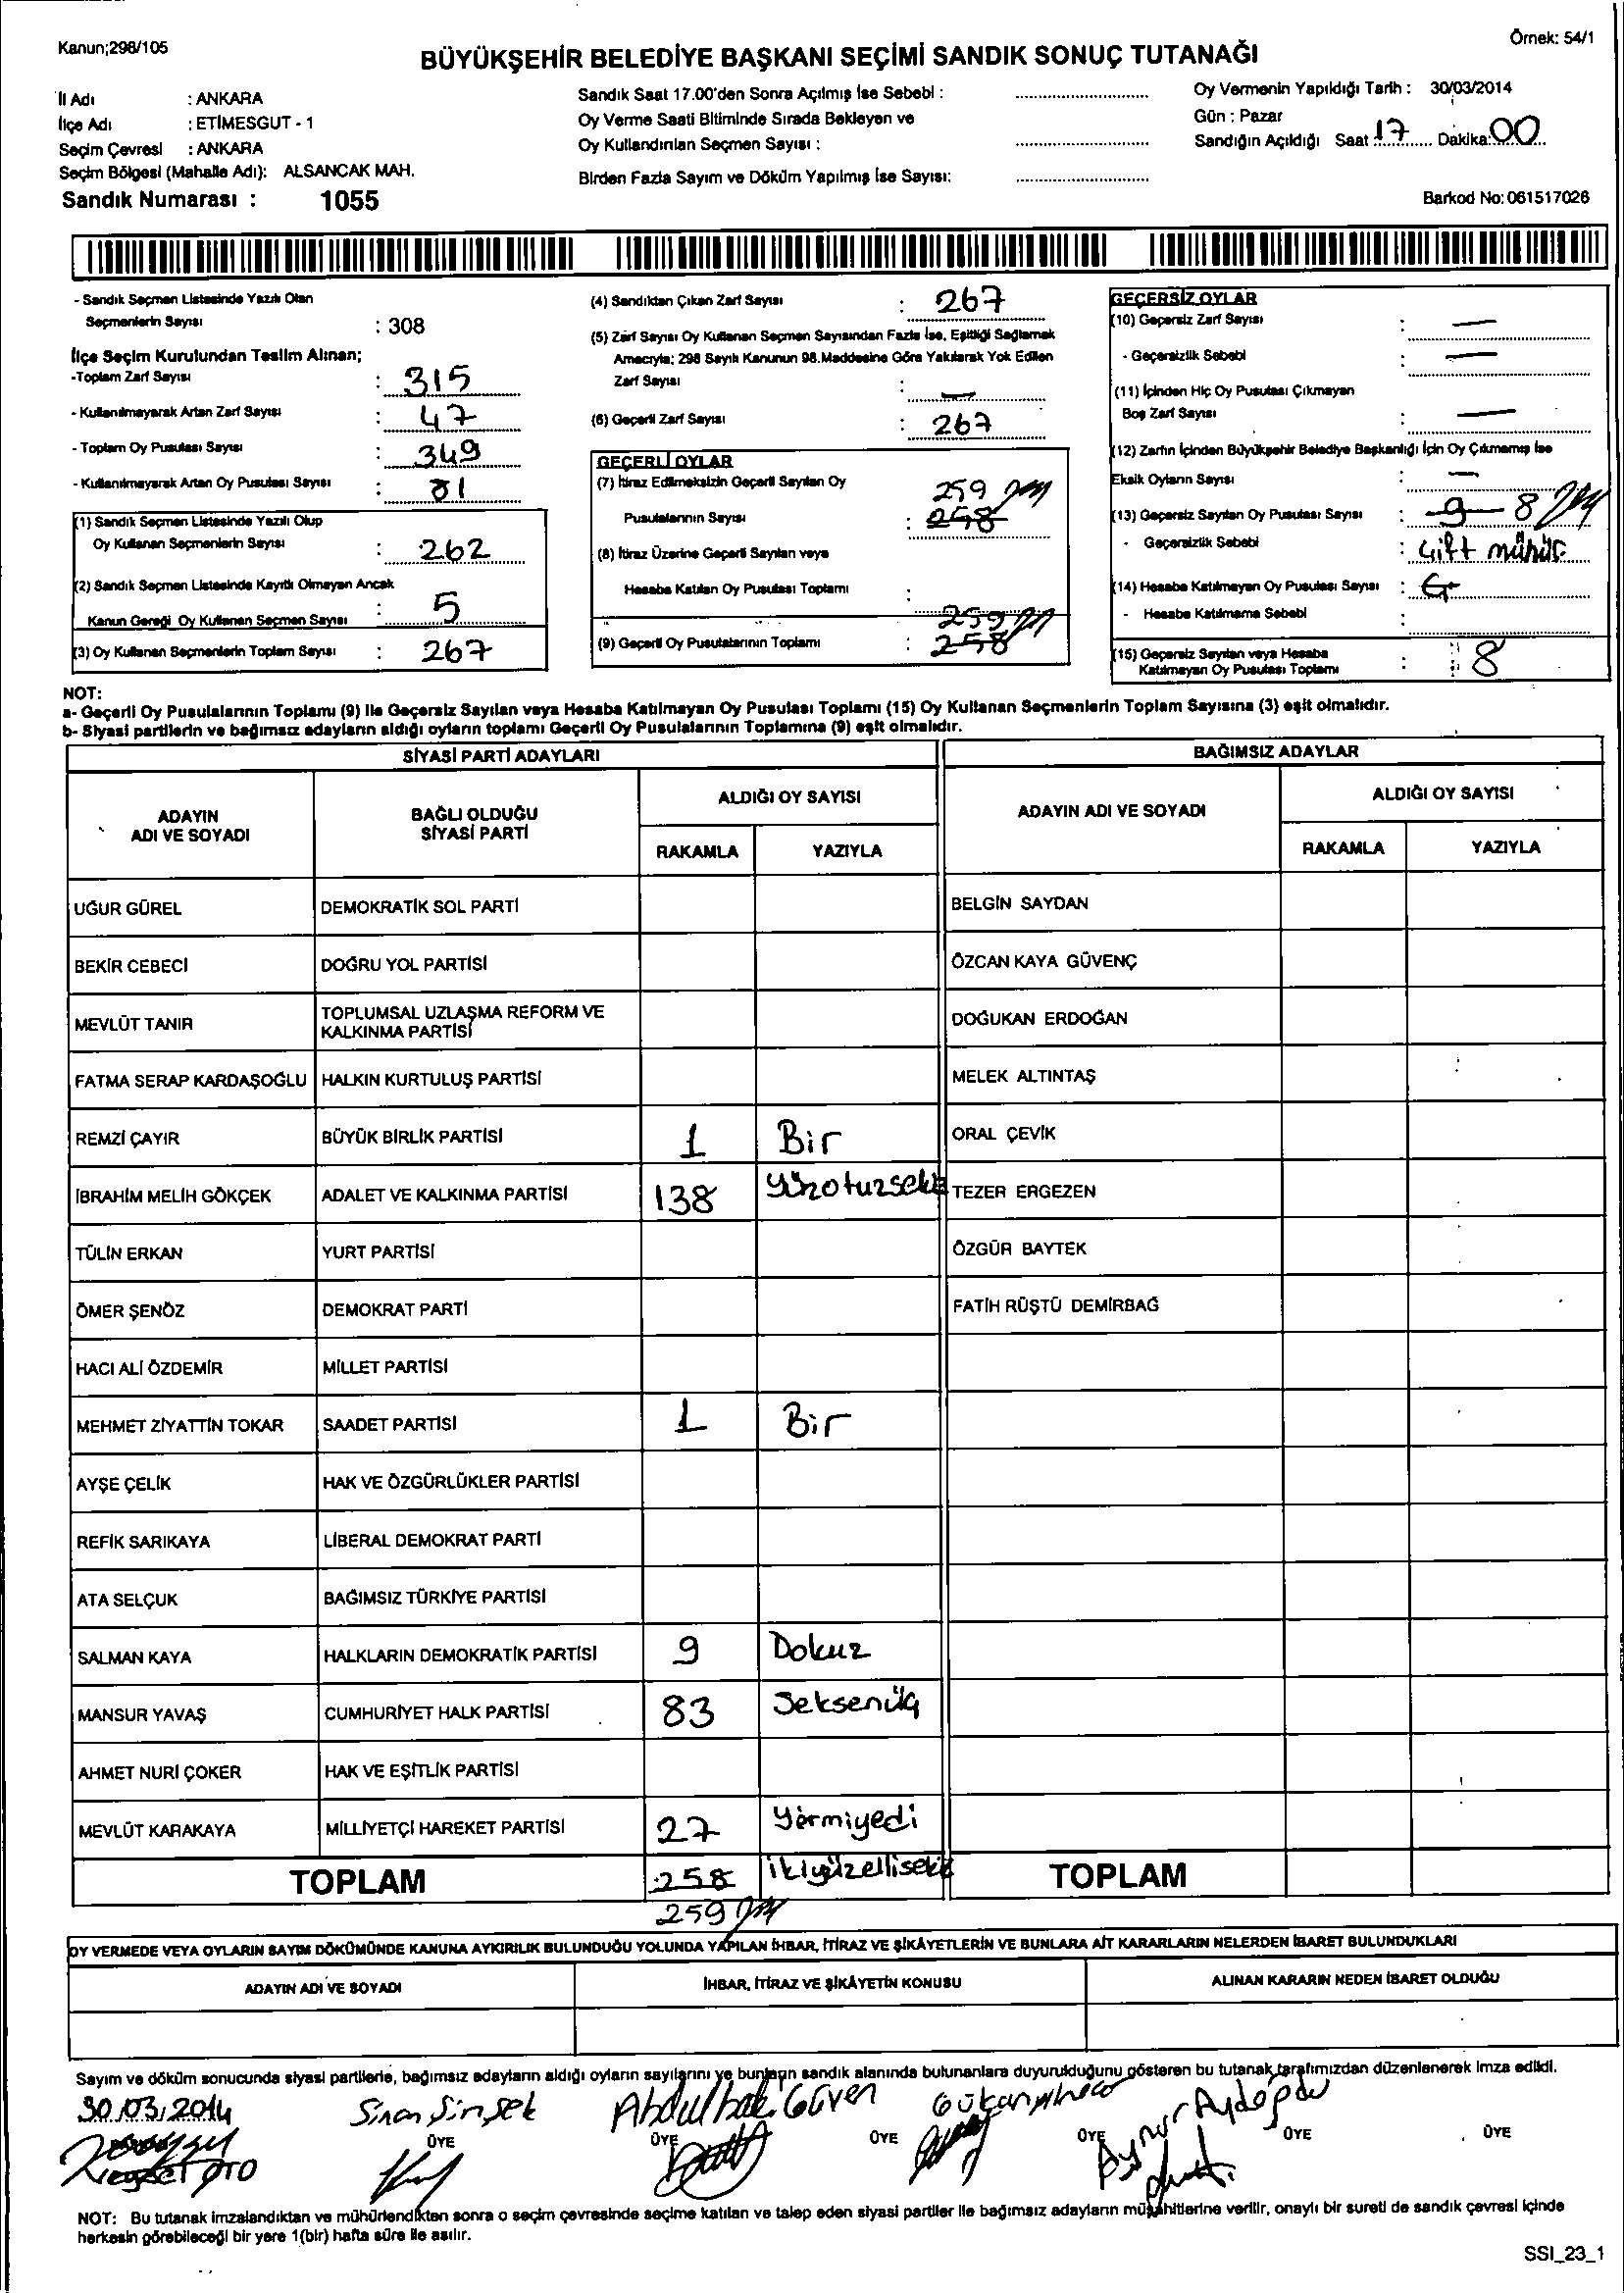 Kanun;298/105
Örnek: 54/1
BÜYÜKŞEHİR BELEDİYE BAŞKANI SEÇİMİ SANDIK SONUÇ TUTANAĞI
İl Adı : ANKARA
İlçe Adı : ETİMESGUT - 1
Seçim Çevresi : ANKARA
Seçim Bölgesi (Mahalle Adı): ALSANCAK MAH.
Sandık Numarası : 1055
Sandık Saat 17.00'den Sonra Açılmış İse Sebebi :
Oy Verme Saati Bitiminde Sırada Bekleyen ve
Oy Kullandırılan Seçmen Sayısı :
Birden Fazla Sayım ve Döküm Yapılmış İse Sayısı:
Oy Vermenin Yapıldığı Tarih : 30/03/2014
Gün : Pazar
Sandığın Açıldığı Saat 17 Dakika: 00
Barkod No: 061517026
- Sandık Seçmen Listesinde Yazılı Olan
Seçmenlerin Sayısı : 308
İlçe Seçim Kurulundan Teslim Alınan;
-Toplam Zarf Sayısı : 315
- Kullanılmayarak Artan Zarf Sayısı : 47
- Toplam Oy Pusulası Sayısı : 349
- Kullanılmayarak Artan Oy Pusulası Sayısı : 81
(1) Sandık Seçmen Listesinde Yazılı Olup
Oy Kullanan Seçmenlerin Sayısı : 262
(2) Sandık Seçmen Listesinde Kayıtlı Olmayan Ancak
Kanun Gereği Oy Kullanan Seçmen Sayısı : 5
(3) Oy Kullanan Seçmenlerin Toplam Sayısı : 267
(4) Sandıktan Çıkan Zarf Sayısı : 267
(5) Zarf Sayısı Oy Kullanan Seçmen Sayısından Fazla İse, Eşitliği Sağlamak
Amacıyla; 298 Sayılı Kanunun 98.Maddesine Göre Yakılarak Yok Edilen
Zarf Sayısı : —
(6) Geçerli Zarf Sayısı : 267
GEÇERLİ OYLAR
(7) İtiraz Edilmeksizin Geçerli Sayılan Oy 259
Pusulalarının Sayısı : 258
(8) İtiraz Üzerine Geçerli Sayılan veya
Hesaba Katılan Oy Pusulası Toplamı :
259
(9) Geçerli Oy Pusulalarının Toplamı : 258
GEÇERSİZ OYLAR
(10) Geçersiz Zarf Sayısı : —
- Geçersizlik Sebebi : —
(11) İçinden Hiç Oy Pusulası Çıkmayan
Boş Zarf Sayısı : —
(12) Zarfın İçinden Büyükşehir Belediye Başkanlığı İçin Oy Çıkmamış İse
Eksik Oyların Sayısı : —
(13) Geçersiz Sayılan Oy Pusulası Sayısı : 9 8
- Geçersizlik Sebebi : Çift mühür
(14) Hesaba Katılmayan Oy Pusulası Sayısı :
- Hesaba Katılmama Sebebi :
(15) Geçersiz Sayılan veya Hesaba
Katılmayan Oy Pusulası Toplamı : 8
NOT:
a- Geçerli Oy Pusulalarının Toplamı (9) ile Geçersiz Sayılan veya Hesaba Katılmayan Oy Pusulası Toplamı (15) Oy Kullanan Seçmenlerin Toplam Sayısına (3) eşit olmalıdır.
b- Siyasi partilerin ve bağımsız adayların aldığı oyların toplamı Geçerli Oy Pusulalarının Toplamına (9) eşit olmalıdır.
SİYASİ PARTİ ADAYLARI
BAĞIMSIZ ADAYLAR
ADAYIN ADI VE SOYADI
BAĞLI OLDUĞU SİYASİ PARTİ
ALDIĞI OY SAYISI
RAKAMLA YAZIYLA
ADAYIN ADI VE SOYADI
ALDIĞI OY SAYISI
RAKAMLA YAZIYLA
UĞUR GÜREL DEMOKRATİK SOL PARTİ BELGİN SAYDAN
BEKİR CEBECİ DOĞRU YOL PARTİSİ ÖZCAN KAYA GÜVENÇ
MEVLÜT TANIR TOPLUMSAL UZLAŞMA REFORM VE KALKINMA PARTİSİ DOĞUKAN ERDOĞAN
FATMA SERAP KARDAŞOĞLU HALKIN KURTULUŞ PARTİSİ MELEK ALTINTAŞ
REMZİ ÇAYIR BÜYÜK BİRLİK PARTİSİ 1 Bir ORAL ÇEVİK
İBRAHİM MELİH GÖKÇEK ADALET VE KALKINMA PARTİSİ 138 Yüzotuzsekiz TEZER ERGEZEN
TÜLİN ERKAN YURT PARTİSİ ÖZGÜR BAYTEK
ÖMER ŞENÖZ DEMOKRAT PARTİ FATİH RÜŞTÜ DEMİRBAĞ
HACI ALİ ÖZDEMİR MİLLET PARTİSİ
MEHMET ZİYATTİN TOKAR SAADET PARTİSİ 1 Bir
AYŞE ÇELİK HAK VE ÖZGÜRLÜKLER PARTİSİ
REFİK SARIKAYA LİBERAL DEMOKRAT PARTİ
ATA SELÇUK BAĞIMSIZ TÜRKİYE PARTİSİ
SALMAN KAYA HALKLARIN DEMOKRATİK PARTİSİ 9 Dokuz
MANSUR YAVAŞ CUMHURİYET HALK PARTİSİ 83 Seksenüç
AHMET NURİ ÇOKER HAK VE EŞİTLİK PARTİSİ
MEVLÜT KARAKAYA MİLLİYETÇİ HAREKET PARTİSİ 27 Yirmiyedi
TOPLAM 258 ikiyüzellisekiz TOPLAM
259
OY VERMEDE VEYA OYLARIN SAYIM DÖKÜMÜNDE KANUNA AYKIRILIK BULUNDUĞU YOLUNDA YAPILAN İHBAR, İTİRAZ VE ŞİKÂYETLERİN VE BUNLARA AİT KARARLARIN NELERDEN İBARET BULUNDUKLARI
ADAYIN ADI VE SOYADI İHBAR, İTİRAZ VE ŞİKÂYETİN KONUSU ALINAN KARARIN NEDEN İBARET OLDUĞU
Sayım ve döküm sonucunda siyasi partilerle, bağımsız adayların aldığı oyların sayılarını ve bunların sandık alanında bulunanlara duyurulduğunu gösteren bu tutanak tarafımızdan düzenlenerek imza edildi.
30/03/2014 Sinan Şimşek Abdulbaki Güven Aynur Aydoğdu
ÜYE ÜYE ÜYE ÜYE ÜYE ÜYE
NOT: Bu tutanak imzalandıktan ve mühürlendikten sonra o seçim çevresinde seçime katılan ve talep eden siyasi partiler ile bağımsız adayların müşahitlerine verilir, onaylı bir sureti de sandık çevresi içinde
herkesin görebileceği bir yere 1(bir) hafta süre ile asılır.
SSI_23_1